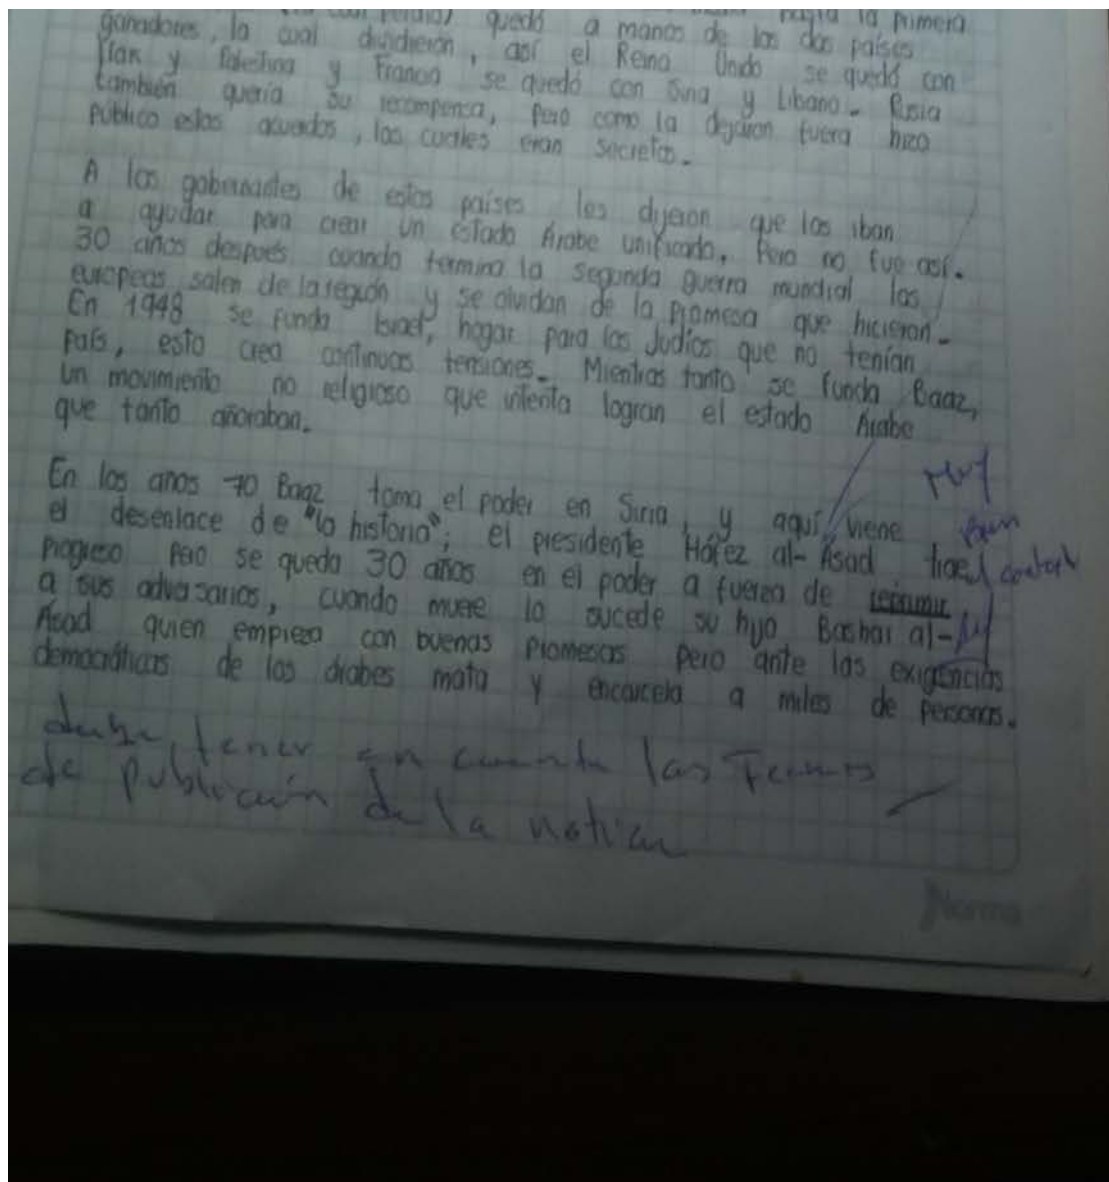 quedó a manos de los dos países
ganadores, la cual dividieron, así el Reino Unido se quedó con
Irak y Palestina y Francia se quedó con Siria y Libano. Rusia
también quería su recompensa, pero como la dejaron fuera hizo
público estos acuerdos, los cuales eran secretos.
A los gobernantes de estos países les dijeron que los iban
a ayudar para crear un estado Árabe unificado, Pero no fue así.
30 años después cuando termina la segunda guerra mundial los
europeos salen de la región y se olvidan de la promesa que hicieron.
En 1948 se funda Israel, hogar para los Judíos que no tenían
País, esto crea continuas tensiones. Mientras tanto se funda Baaz,
un movimiento no religioso que intenta logran el estado Árabe
que tanto añoraban.
En los años 70 Baaz toma el poder en Siria, y aquí viene
el desenlace de "la historia"; el presidente Háfez al-Asad trae
progreso pero se queda 30 años en el poder a fuerza de reprimir
a sus adversarios, cuando muere lo sucede su hijo Bashar al-
Asad quien empieza con buenas promesas pero ante las exigencias
democráticas de los árabes mata y encarcela a miles de personas.
Muy
Bien
debe tener en cuenta las Fechas
de publicación de la noticia
Norma